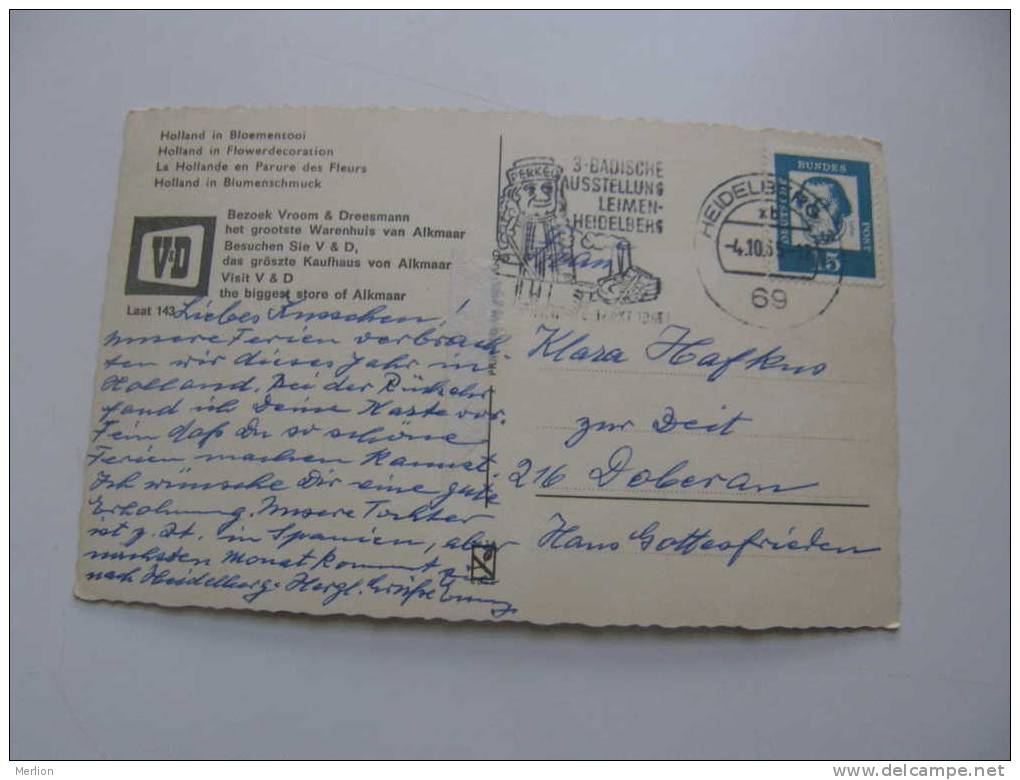 Holland in Bloementooi
Holland in Flowerdecoration
La Hollande en Parure des Fleurs
Holland in Blumenschmuck
V&D
Bezoek Vroom & Dreesmann
het grootste Warenhuis van Alkmaar
Besuchen Sie V & D,
das gröszte Kaufhaus von Alkmaar
Visit V & D
the biggest store of Alkmaar
Laat 143
Liebes
unsere Ferien verbrach-
ten wir dieses Jahr in
Holland. Bei der Rückkehr
fand ich Deine Karte vor.
Fein daß Du so schöne
Ferien machen kannst.
Ich wünsche Dir eine gute
Erholung. Unsere Tochter
ist z. Zt. in Spanien, aber
nächsten Monat kommt
nach Heidelberg. Herzl. Grüße
PERKEO
3. BADISCHE
AUSSTELLUNG
LEIMEN-
HEIDELBERG
HEIDELBERG
xb
-4.10.6
69
BUNDES
POST
15
Frau
Klara Hafkus
zur Zeit
216 Doberan
Haus Gottesfrieden
delcampe.net
Merlion